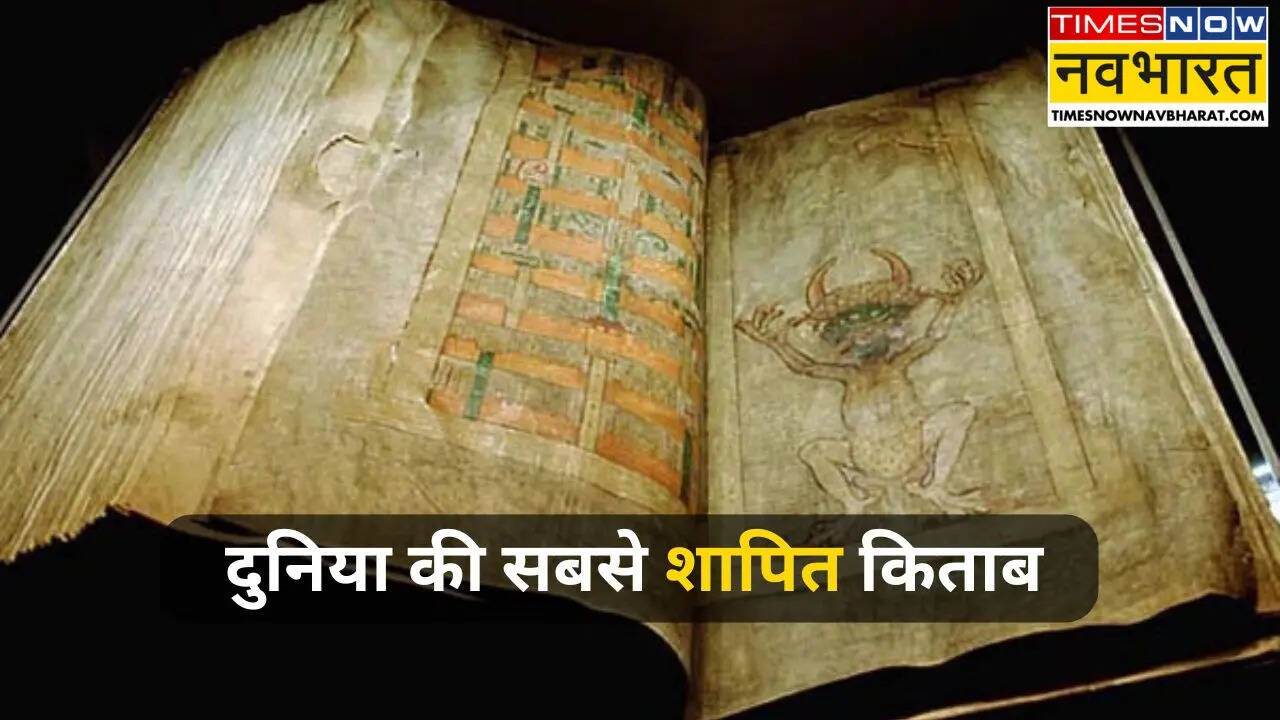 TIMES NOW
नवभारत
TIMESNOWNAVBHARAT.COM
दुनिया की सबसे शापित किताब